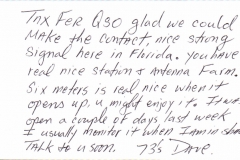 Tnx FER QSO glad we could
MAKE the contact, nice strong
signal here in Florida. you have
real nice station & Antenna Farm.
Six meters is real nice when it
opens up. u might enjoy it. It was
open a couple of days last week
I usually monitor it when I am in shack
TALK to u soon. 73's Dave.